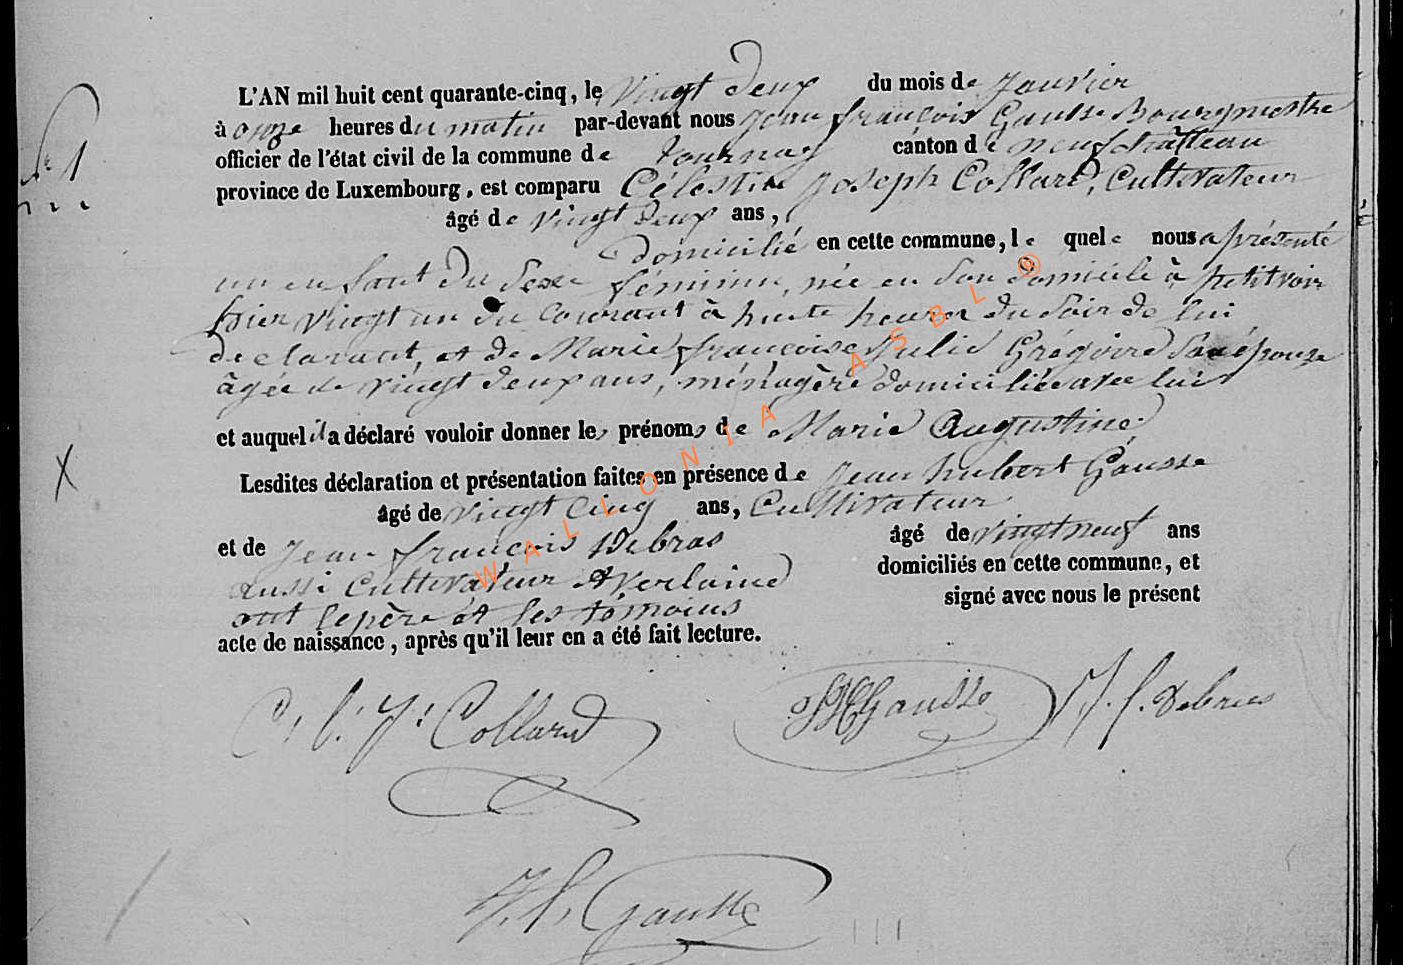 L'AN mil huit cent quarante-cinq, le vingt deux du mois de Janvier
à onze heures du matin par-devant nous Jean françois Gausse Bourgmestre
officier de l'état civil de la commune de tournay canton de neufchâtteau
province de Luxembourg, est comparu Célestin Joseph Collard, Cultivateur
âgé de vingt deux ans,
Domicilié en cette commune, le quel nous a présenté
un enfant du Sexe féminin, née en Son domicile à petitvoir
hier vingt un du Courant à huite heures du Soir de lui
declarant, et de Marie françoise Julie Grégoire Son épouse
âgée de vingt deux ans, ménagère domiciliée avec lui
et auquel il a déclaré vouloir donner les prénoms de Marie Augustine
Lesdites déclaration et présentation faites en présence de Jean hubert Gausse
âgé de vingt Cinq ans, Cultivateur
et de Jean françois Debras âgé de vingt neuf ans
aussi Cultivateur A Verlaine domiciliés en cette commune, et
ont le père et les témoins signé avec nous le présent
acte de naissance, après qu'il leur en a été fait lecture.
C. l. J. Collard JHGausse J. f. Debras
J. f. Gausse
WALLONIA ASBL ©